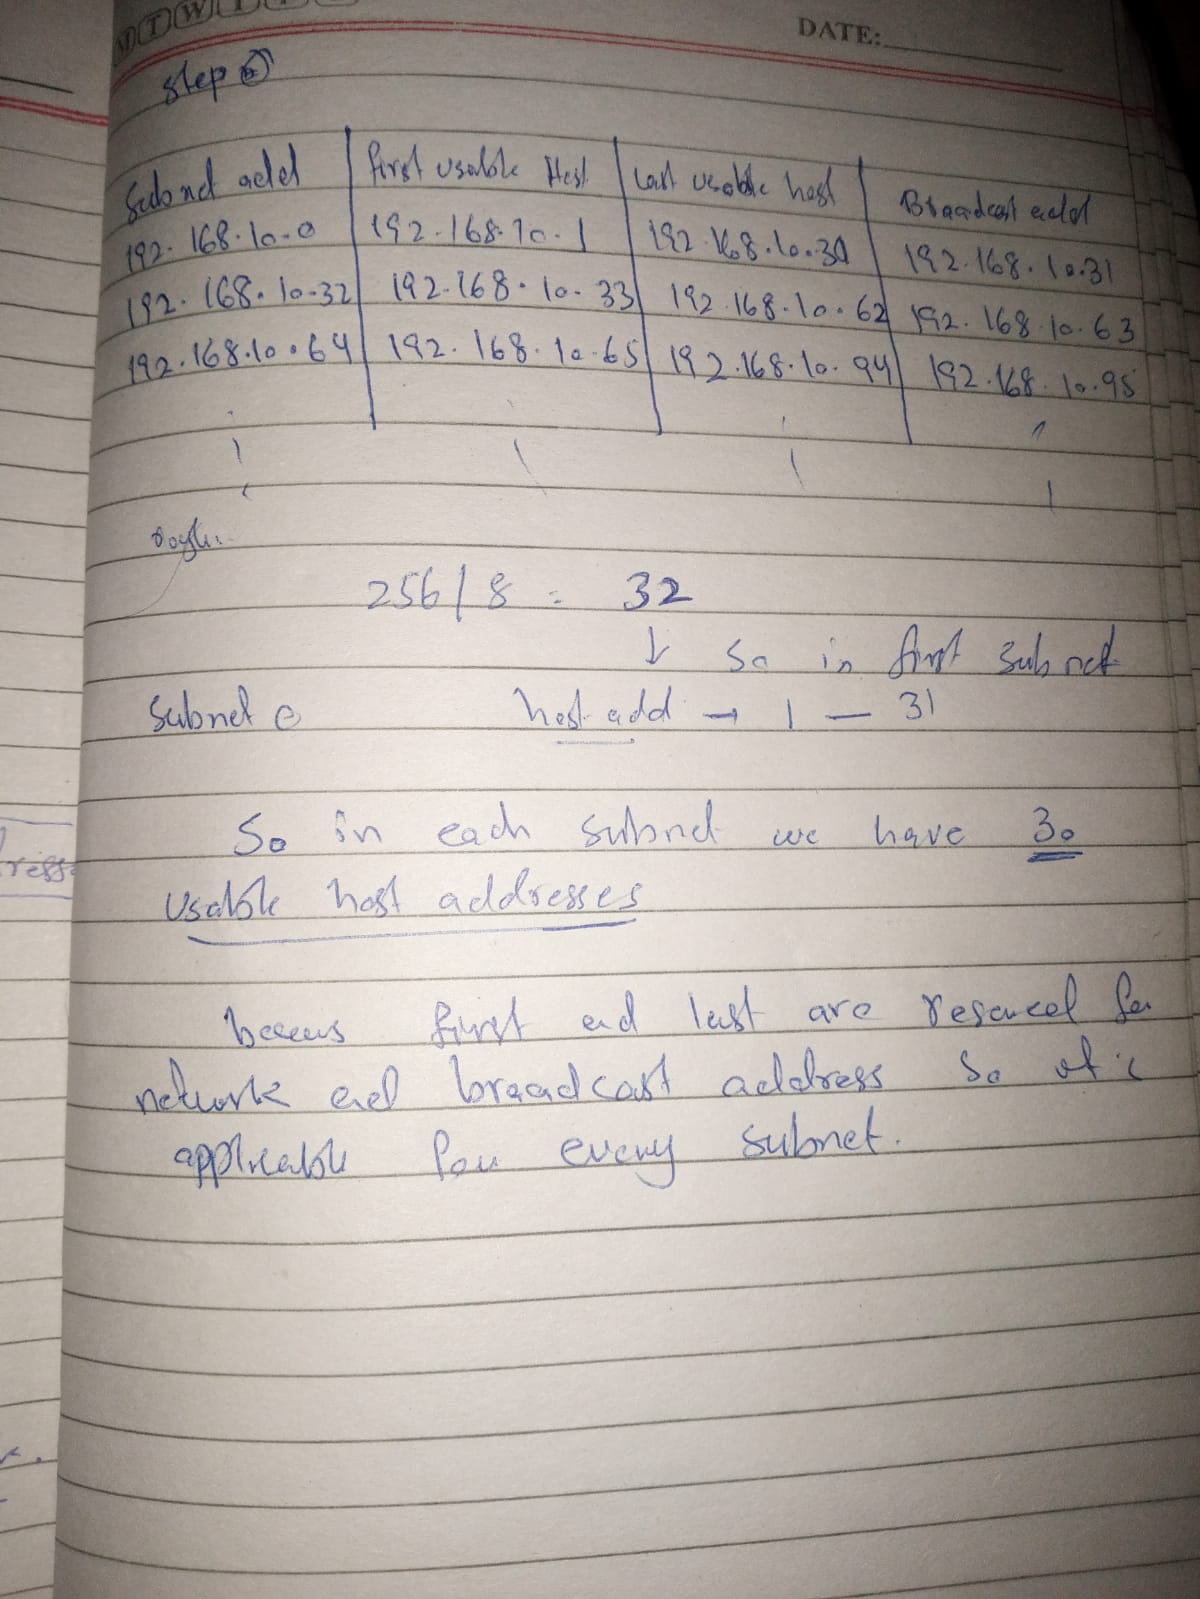 M T W T F
DATE:
step
Subnet add | first usable Host | Last usable host | Broadcast add
192.168.10.0 | 192.168.10.1 | 192.168.10.30 | 192.168.10.31
192.168.10.32 | 192.168.10.33 | 192.168.10.62 | 192.168.10.63
192.168.10.64 | 192.168.10.65 | 192.168.10.94 | 192.168.10.95
256/8 = 32
↓ So in first subnet
Subnet 0 host add → 1 – 31
So in each subnet we have 30
usable host addresses
first and last are
network and broadcast address So
applicable for every subnet.